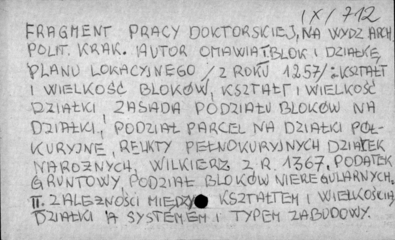 IX/712
FRAGMENT PRACY DOKTORSKIEJ, NA WYDZ ARCH
POLIT. KRAK. AUTOR OMAWIA I BLOK I DZIAŁKĘ
PLANU LOKACYJNEGO /Z ROKU 1257/: KSZTAŁT
I WIELKOŚĆ BLOKÓW, KSZTAŁT I WIELKOŚĆ
DZIAŁKI, ZASADA PODZIAŁU BLOKÓW NA
DZIAŁKI, PODZIAŁ PARCEL NA DZIAŁKI PÓŁ-
KURYJNE, RELIKTY PEŁNOKURYJNYCH DZIAŁEK
NAROŻNYCH, WILKIERZ Z R. 1367, PODATEK
GRUNTOWY, PODZIAŁ BLOKÓW NIEREGULARNYCH.
II. ZALEŻNOŚCI MIĘDZY KSZTAŁTEM I WIELKOŚCIĄ
DZIAŁKI A SYSTEMEM I TYPEM ZABUDOWY.